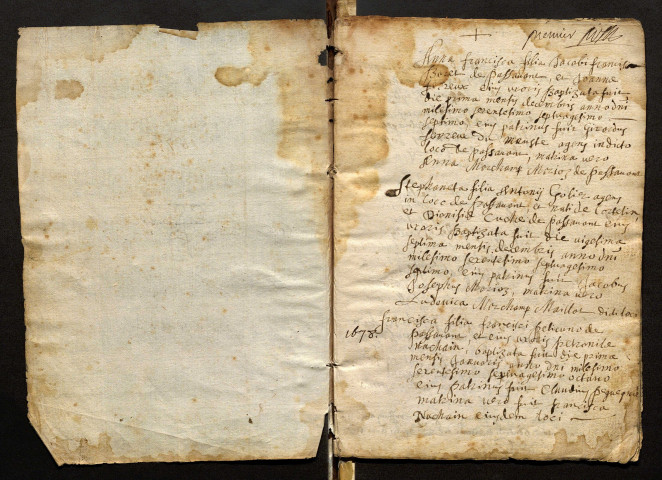 premier
+
Anna francisca filia Jacobi francisci
de Passavant, et Joanna
eius uxoris Baptizata fuit
die prima mensis decembris anno dni
milesimo sexentesimo septuagesimo
septimo, eius patrinus fuit
agens in dicto
loco de passavant, matrina vero
Anna de Passavant
Stephaneta filia Antonij agens
in loco de Passavant et
et Dionisia Cuche de Passavant eius
uxoris Baptizata fuit die vigesima
septima mensis decembris anno dni
milesimo sexentesimo septuagesimo
septimo, eius patrinus fuit Jacobus
Josephus matrina vero
Ludovica Maillot dicti loci
francisca filia francisci de
1678.
Passavant et eius uxoris Petronile
Nachain, baptizata fuit die prima
mensis Januarij anno dni milesimo
sexentesimo septuagesimo octavo
eius Patrinus fuit Claudius
matrina vero fuit francisca
Nachain eiusdem loci